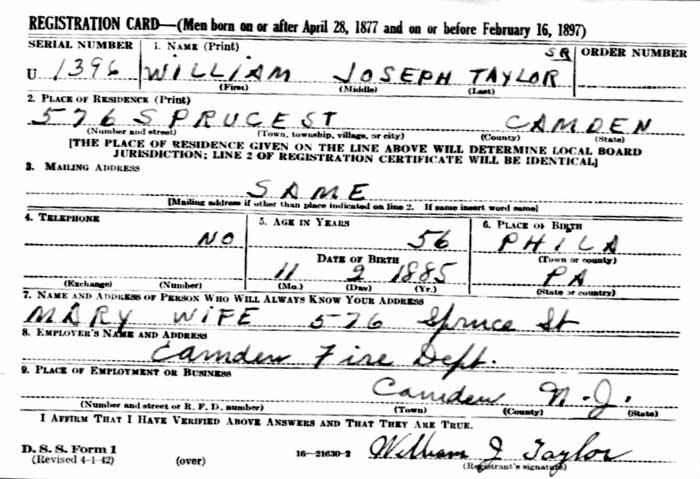 REGISTRATION CARD—(Men born on or after April 28, 1877 and on or before February 16, 1897)
SERIAL NUMBER 1. NAME (Print) ORDER NUMBER
SR
U 1396 WILLIAM JOSEPH TAYLOR
(First) (Middle) (Last)
2. PLACE OF RESIDENCE (Print)
576 SPRUCE ST CAMDEN
(Number and street) (Town, township, village, or city) (County) (State)
[THE PLACE OF RESIDENCE GIVEN ON THE LINE ABOVE WILL DETERMINE LOCAL BOARD
JURISDICTION; LINE 2 OF REGISTRATION CERTIFICATE WILL BE IDENTICAL]
3. MAILING ADDRESS
SAME
[Mailing address if other than place indicated on line 2. If same insert word same]
4. TELEPHONE 5. AGE IN YEARS 6. PLACE OF BIRTH
NO 56 PHILA
DATE OF BIRTH (Town or county)
11 2 1885 PA
(Exchange) (Number) (Mo.) (Day) (Yr.) (State or country)
7. NAME AND ADDRESS OF PERSON WHO WILL ALWAYS KNOW YOUR ADDRESS
MARY WIFE 576 Spruce St
8. EMPLOYER'S NAME AND ADDRESS
Camden Fire Dept.
9. PLACE OF EMPLOYMENT OR BUSINESS
Camden N.J.
(Number and street or R. F. D. number) (Town) (County) (State)
I AFFIRM THAT I HAVE VERIFIED ABOVE ANSWERS AND THAT THEY ARE TRUE.
D. S. S. Form 1
(Revised 4-1-42) (over) 16—21630-2 William J Taylor
(Registrant's signature)